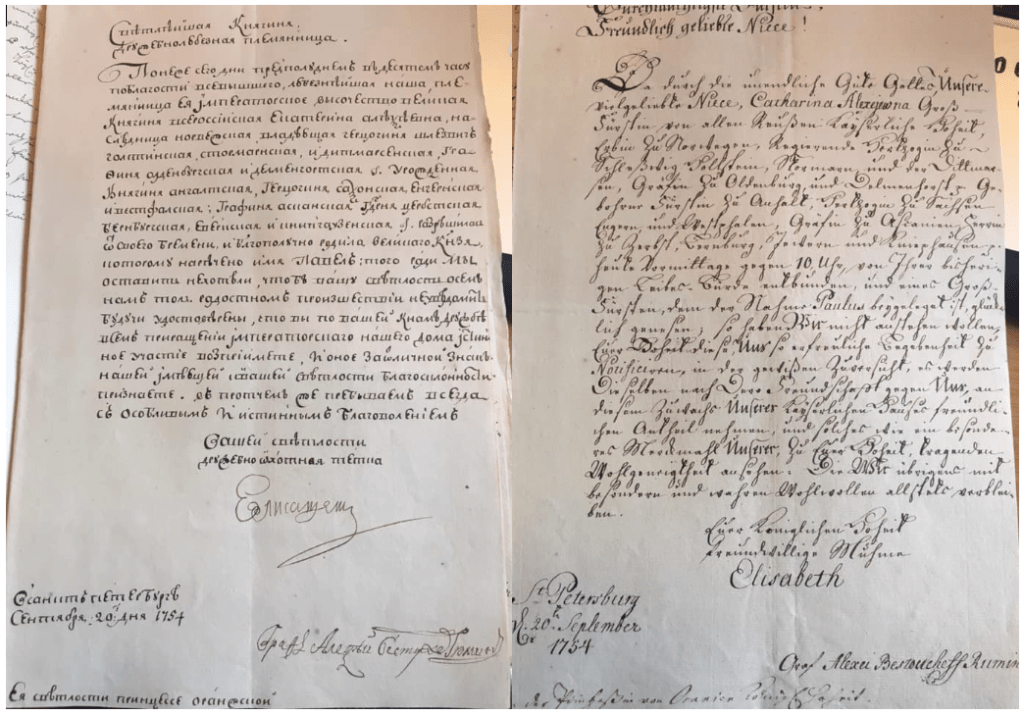 Свѣтлѣйшая Княгиня.
Дружебнолюбезная племянница.
Понеже сегодни предполуднемъ въ десятомъ часу
поблагости всевышняго, любезнѣйшая наша пле-
мяница Ея Императорское высочество великая
Княгиня всероссийская Екатерина Алеѯѣевна, на-
слѣдница норвежская владѣющая герцогиня шлезвигъ
голстинская, стормарская, и дитмарсенская, Гра-
финя олденбургская и делменгорстская р. Урожденная
Княгиня ангалтская, Герцогиня саѯонская, Енгернская
и вестфалская; Графиня асканская Гдрня цербстская
бернбургская, Еверская и книпгаузенская р.
своего бремени, и благополучно родила великаго Князя,
которому наречено имя Павелъ; того ради Мы
оставить нехотѣли, чтобъ вашу свѣтлость осемъ
намъ толь радостномъ произшествіи
будучи удостовѣрены, что вы по вашей Кнамъ дружбѣ
всемъ приращеніи императорскаго нашего дома
ное участие возприимете, и оное заотличной знакъ
нашей имѣющей квашей свѣтлости благосклонности
признаете. Въ протчемъ же пребываемъ всегда
съ особливымъ и истиннымъ благоволеніемъ
Вашей свѣтлости
дружебно охотная тетка
Елисаветъ
Всанктъ петербургѣ
Сентября: 20: дня 1754
Графъ Алеѯѣй Бестужевъ Рюминъ
Ея свѣтлости принцессе оранжской
Durchlauchtigste Fürstin,
Freundlich geliebte Niece!
Da durch die unendliche Güte Gottes Unsere
vielgeliebte Niece, Catharina Alexejewna Groß-
Fürstin von allen Reußen Kayserliche Hoheit,
Erbin zu Norwegen, Regierende Hertzogin zu
Schleßwig Hollstein, Stormarn und der Dittmar-
sen, Gräfin zu Oldenburg, und Delmenhorst p. Ge-
bohrne Fürstin zu Anhalt, Hertzogin zu Sachsen
Engern, und Westphalen, Gräfin zu Ascanien, Herrin
zu Zerbst, Bernburg, Jevern und Kniephausen p.
heute Vormittags gegen 10. Uhr, von Ihrer bisheri-
gen Leibes-Bürde entbunden, und eines Groß-
Fürsten, dem der Nahme Paulus beygeleget ist, glück-
lich genesen; so haben Wir nicht anstehen wollen,
Euer Hoheit diese, Uns so erfreuliche Begebenheit zu
Notificiren, in der gewißen Zuversicht, es werden
Dieselben nach Dero Freundschafft gegen Uns, an
diesem Zuwachs Unserer Kayserlichen Hauses freundli-
chen Antheil nehmen, und solches wie ein besonde-
res Merckmahl Unserer, zu Euer Hoheit, tragenden
Wohlgeneigtheit ansehen. Die Wir übrigens mit
besondern und wahren Wohlwollen allstets verblei-
ben.
Euer Königlichen Hoheit
freundwillige Muhme
Elisabeth
St. Petersburg
d. 20t. September
1754
Graf Alexei Bestoucheff Rumin
der Prinzeßin von Oranien Königl. Hoheit.